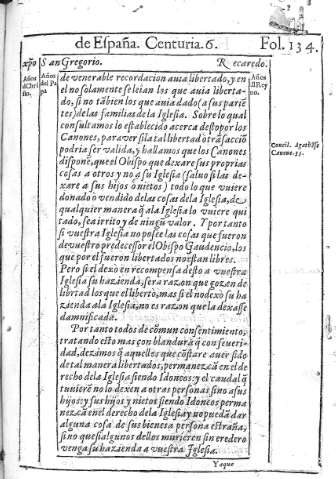 de España. Centuria. 6. Fol. 134.
xpō San Gregorio. Recaredo.
Años d̄Chri sto.
Años del Pa pa
Años dl Rey no.
de venerable recordacion auia libertado, y en
el no solamente se leian los que auia liberta-
do, si no tābien los que auia dado (a sus pariē
tes) de las familias de la Iglesia. Sobre lo qual
consultamos lo establecido acerca desto por los
Canones, para ver si la tal libertad o trāsacciō
podria ser valida, y hallamos que los Canones
dispone, que el Obispo que dexare sus proprias
cosas a otros y no a su Iglesia (saluo si las de-
xare a sus hijos o nietos) todo lo que vuiere
donado o vendido de las cosas de la Iglesia, de
qualquier manera q̄ a la Iglesia lo vuiere qui
tado, sea irrito y de ningū valor. Y por tanto
si vuestra Iglesia no posee las cosas que fueron
de vuestro predecessor el Obispo Gaudencio, los
que por el fueron libertados no estan libres.
Pero si el dexo en recompensa desto a vuestra
Iglesia su hazienda, sera razon que gozen de
libertad los que el liberto, mas si el no dexo su ha
zienda a la Iglesia, no es razon que la dexasse
damnificada.
Por tanto todos de comun consentimiento,
tratando esto mas con blandura q̄ con seueri-
dad, dezimos q̄ aquellos que cōstare auer sido
de tal manera libertados, permanezcā en el de
recho de la Iglesia siendo Idoneos: y el caudal q̄
tuuierē no lo dexen a otras personas sino a sus
hijos: y sus hijos y nietos siendo Idoneos perma
nezcā en el derecho de la Iglesia: y no puedā dar
alguna cosa de sus bienes a persona estraña,
si no que si algunos dellos murieren sin eredero
venga su hazienda a vuestra Iglesia.
Concil. Agathēse
Canone. 33.
Y aque